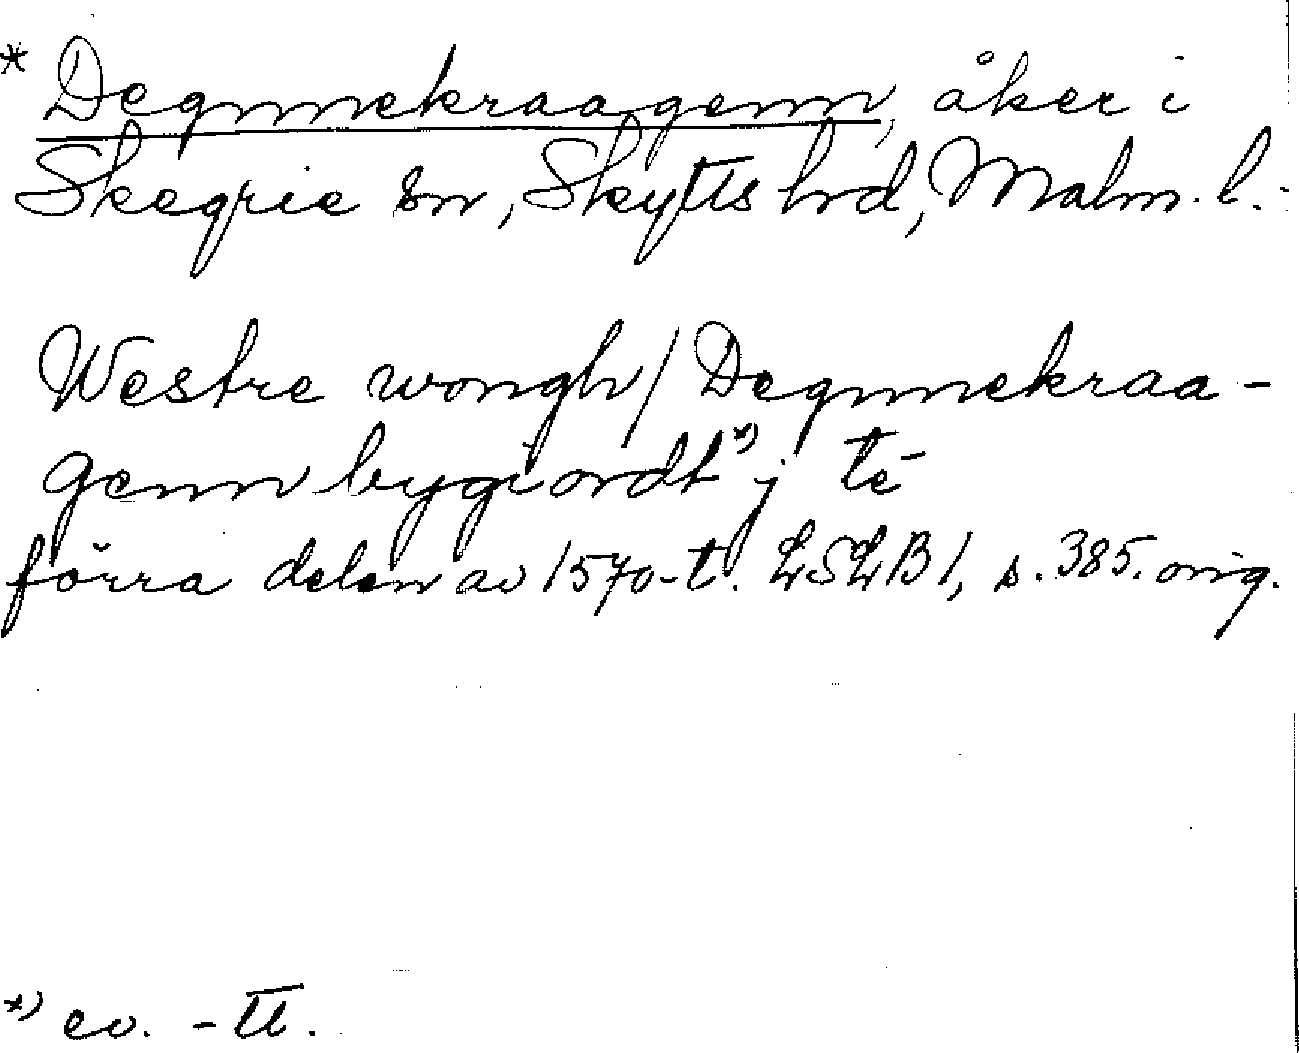 * Degnnekraagenn, åker i
Skegrie sn, Skytts hd, Malm. l.
Westre wongh / Degnnekraa-
genn bygiordt *) j te
förra delen av 1570-t. LSLB 1, s. 385. orig.
*) ev. -tt.